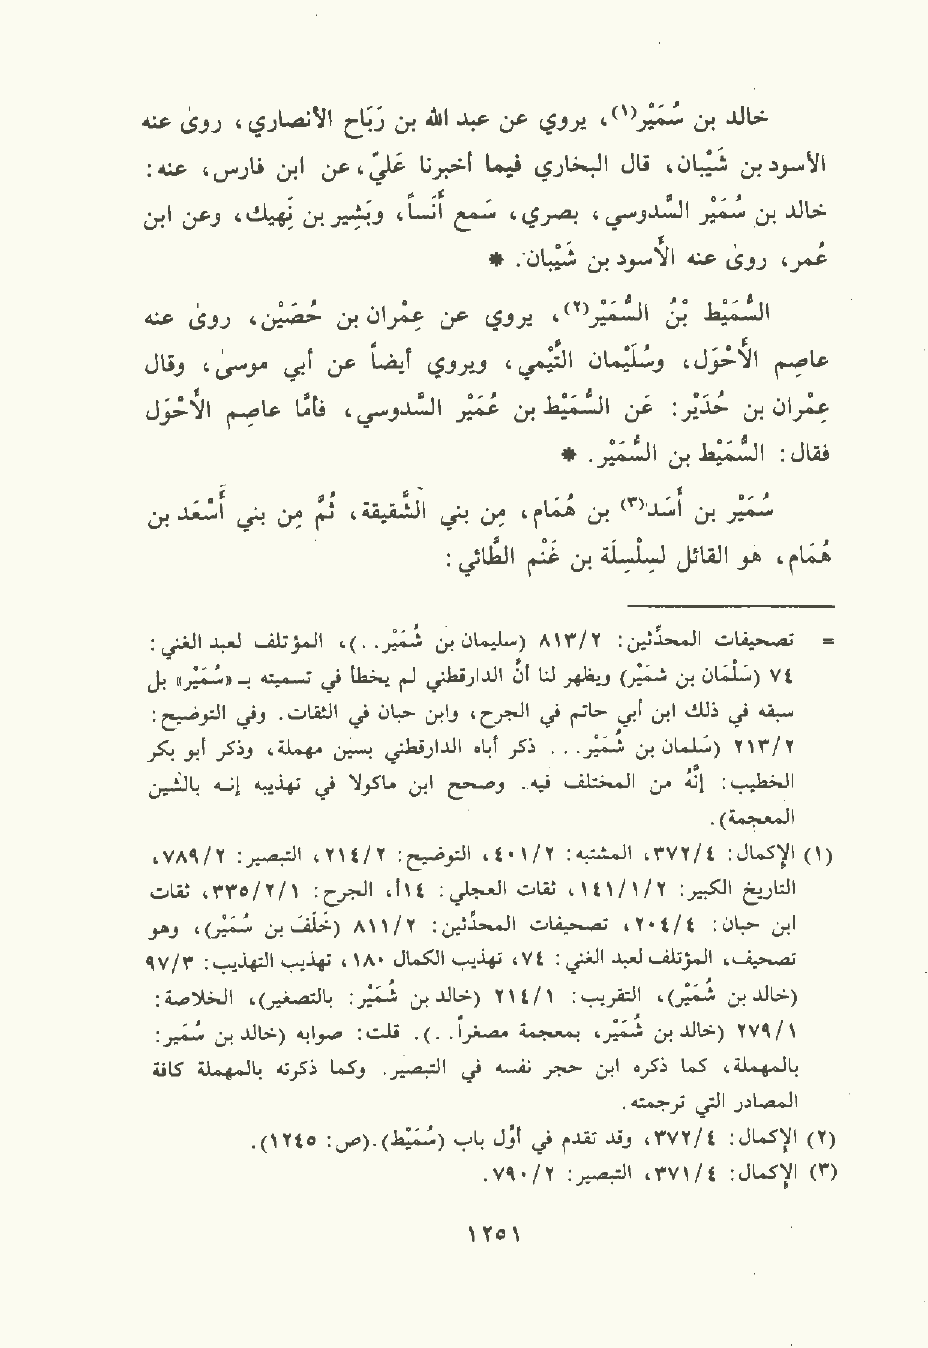 خالد بن سُمَيْر⁽¹⁾، يروي عن عبد الله بن رَبَاح الأنصاري، روىٰ عنه
الأسود بن شَيْبَان، قال البخاري فيما أخبرنا عَليّ، عن ابن فارس، عنه:
خالد بن سُمَيْر السَّدوسي، بصري، سَمع أَنَساً، وبَشِير بن نَهِيك، وعن ابن
عُمر، روىٰ عنه الأَسود بن شَيْبَان. *
السُّمَيْط بْنُ السُّمَيْر⁽٢⁾، يروي عن عِمْران بن حُصَيْن، روىٰ عنه
عاصِم الأَحْوَل، وسُلَيْمان التَّيْمي، ويروي أيضاً عن أبي موسىٰ، وقال
عِمْران بن حُدَيْر: عَن السُّمَيْط بن عُمَيْر السَّدوسي، فأمّا عاصِم الأَحْوَل
فقال: السُّمَيْط بن السُّمَيْر. *
سُمَيْر بن أَسَد⁽٣⁾ بن هُمَام، مِن بني الشَّقيقة، ثُمَّ مِن بني أَسْعَد بن
هُمَام، هو القائل لسِلْسِلَة بن غَنْم الطَّائي:
= تصحيفات المحدِّثين: ٨١٣/٢ (سليمان بن شُمَيْر. .)، المؤتلف لعبد الغني:
٧٤ (سَلْمَان بن سُمَيْر) ويظهر لنا أنَّ الدارقطني لم يخطأ في تسميته بـ «سُمَيْر» بل
سبقه في ذلك ابن أبي حاتم في الجرح، وابن حبان في الثقات. وفي التوضيح:
٢١٣/٢ (سَلْمان بن شُمَيْر. . . ذكر أباه الدارقطني بسين مهملة، وذكر أبو بكر
الخطيب: إنَّهُ من المختلف فيه. وصحح ابن ماكولا في تهذيبه إنـه بالشين
المعجمة).
(١) الإكمال: ٣٧٢/٤، المشتبه: ٤٠١/٢، التوضيح: ٢١٤/٢، التبصير: ٧٨٩/٢،
التاريخ الكبير: ١٤١/١/٢، ثقات العجلي: ١٤أ، الجرح: ٣٣٥/٢/١، ثقات
ابن حبان: ٢٠٤/٤، تصحيفات المحدِّثين: ٨١١/٢ (خَلَف بن سُمَيْر)، وهو
تصحيف، المؤتلف لعبد الغني: ٧٤، تهذيب الكمال ١٨٠، تهذيب التهذيب: ٩٧/٣
(خالد بن شُمَيْر)، التقريب: ٢١٤/١ (خالد بن شُمَيْر: بالتصغير)، الخلاصة:
٢٧٩/١ (خالد بن شُمَيْر، بمعجمة مصغراً. .). قلت: صوابه (خالد بن سُمَيْر:
بالمهملة، كما ذكره ابن حجر نفسه في التبصير. وكما ذكرته بالمهملة كافة
المصادر التي ترجمته.
(٢) الإكمال: ٣٧٢/٤، وقد تقدم في أوَّل باب (سُمَيْط). (ص: ١٢٤٥).
(٣) الإكمال: ٣٧١/٤، التبصير: ٧٩٠/٢.
١٢٥١